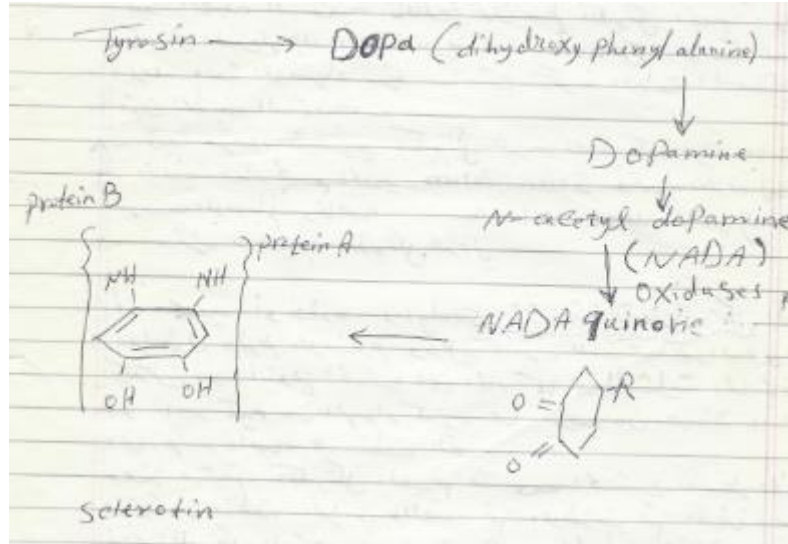 Tyrosin → Dopa (dihydroxy phenyl alanine)
Dopamine
N-acetyl dopamine
(NADA)
oxidases
NADA quinone
protein B
protein A
NH NH
OH OH
O = -R
O =
sclerotin